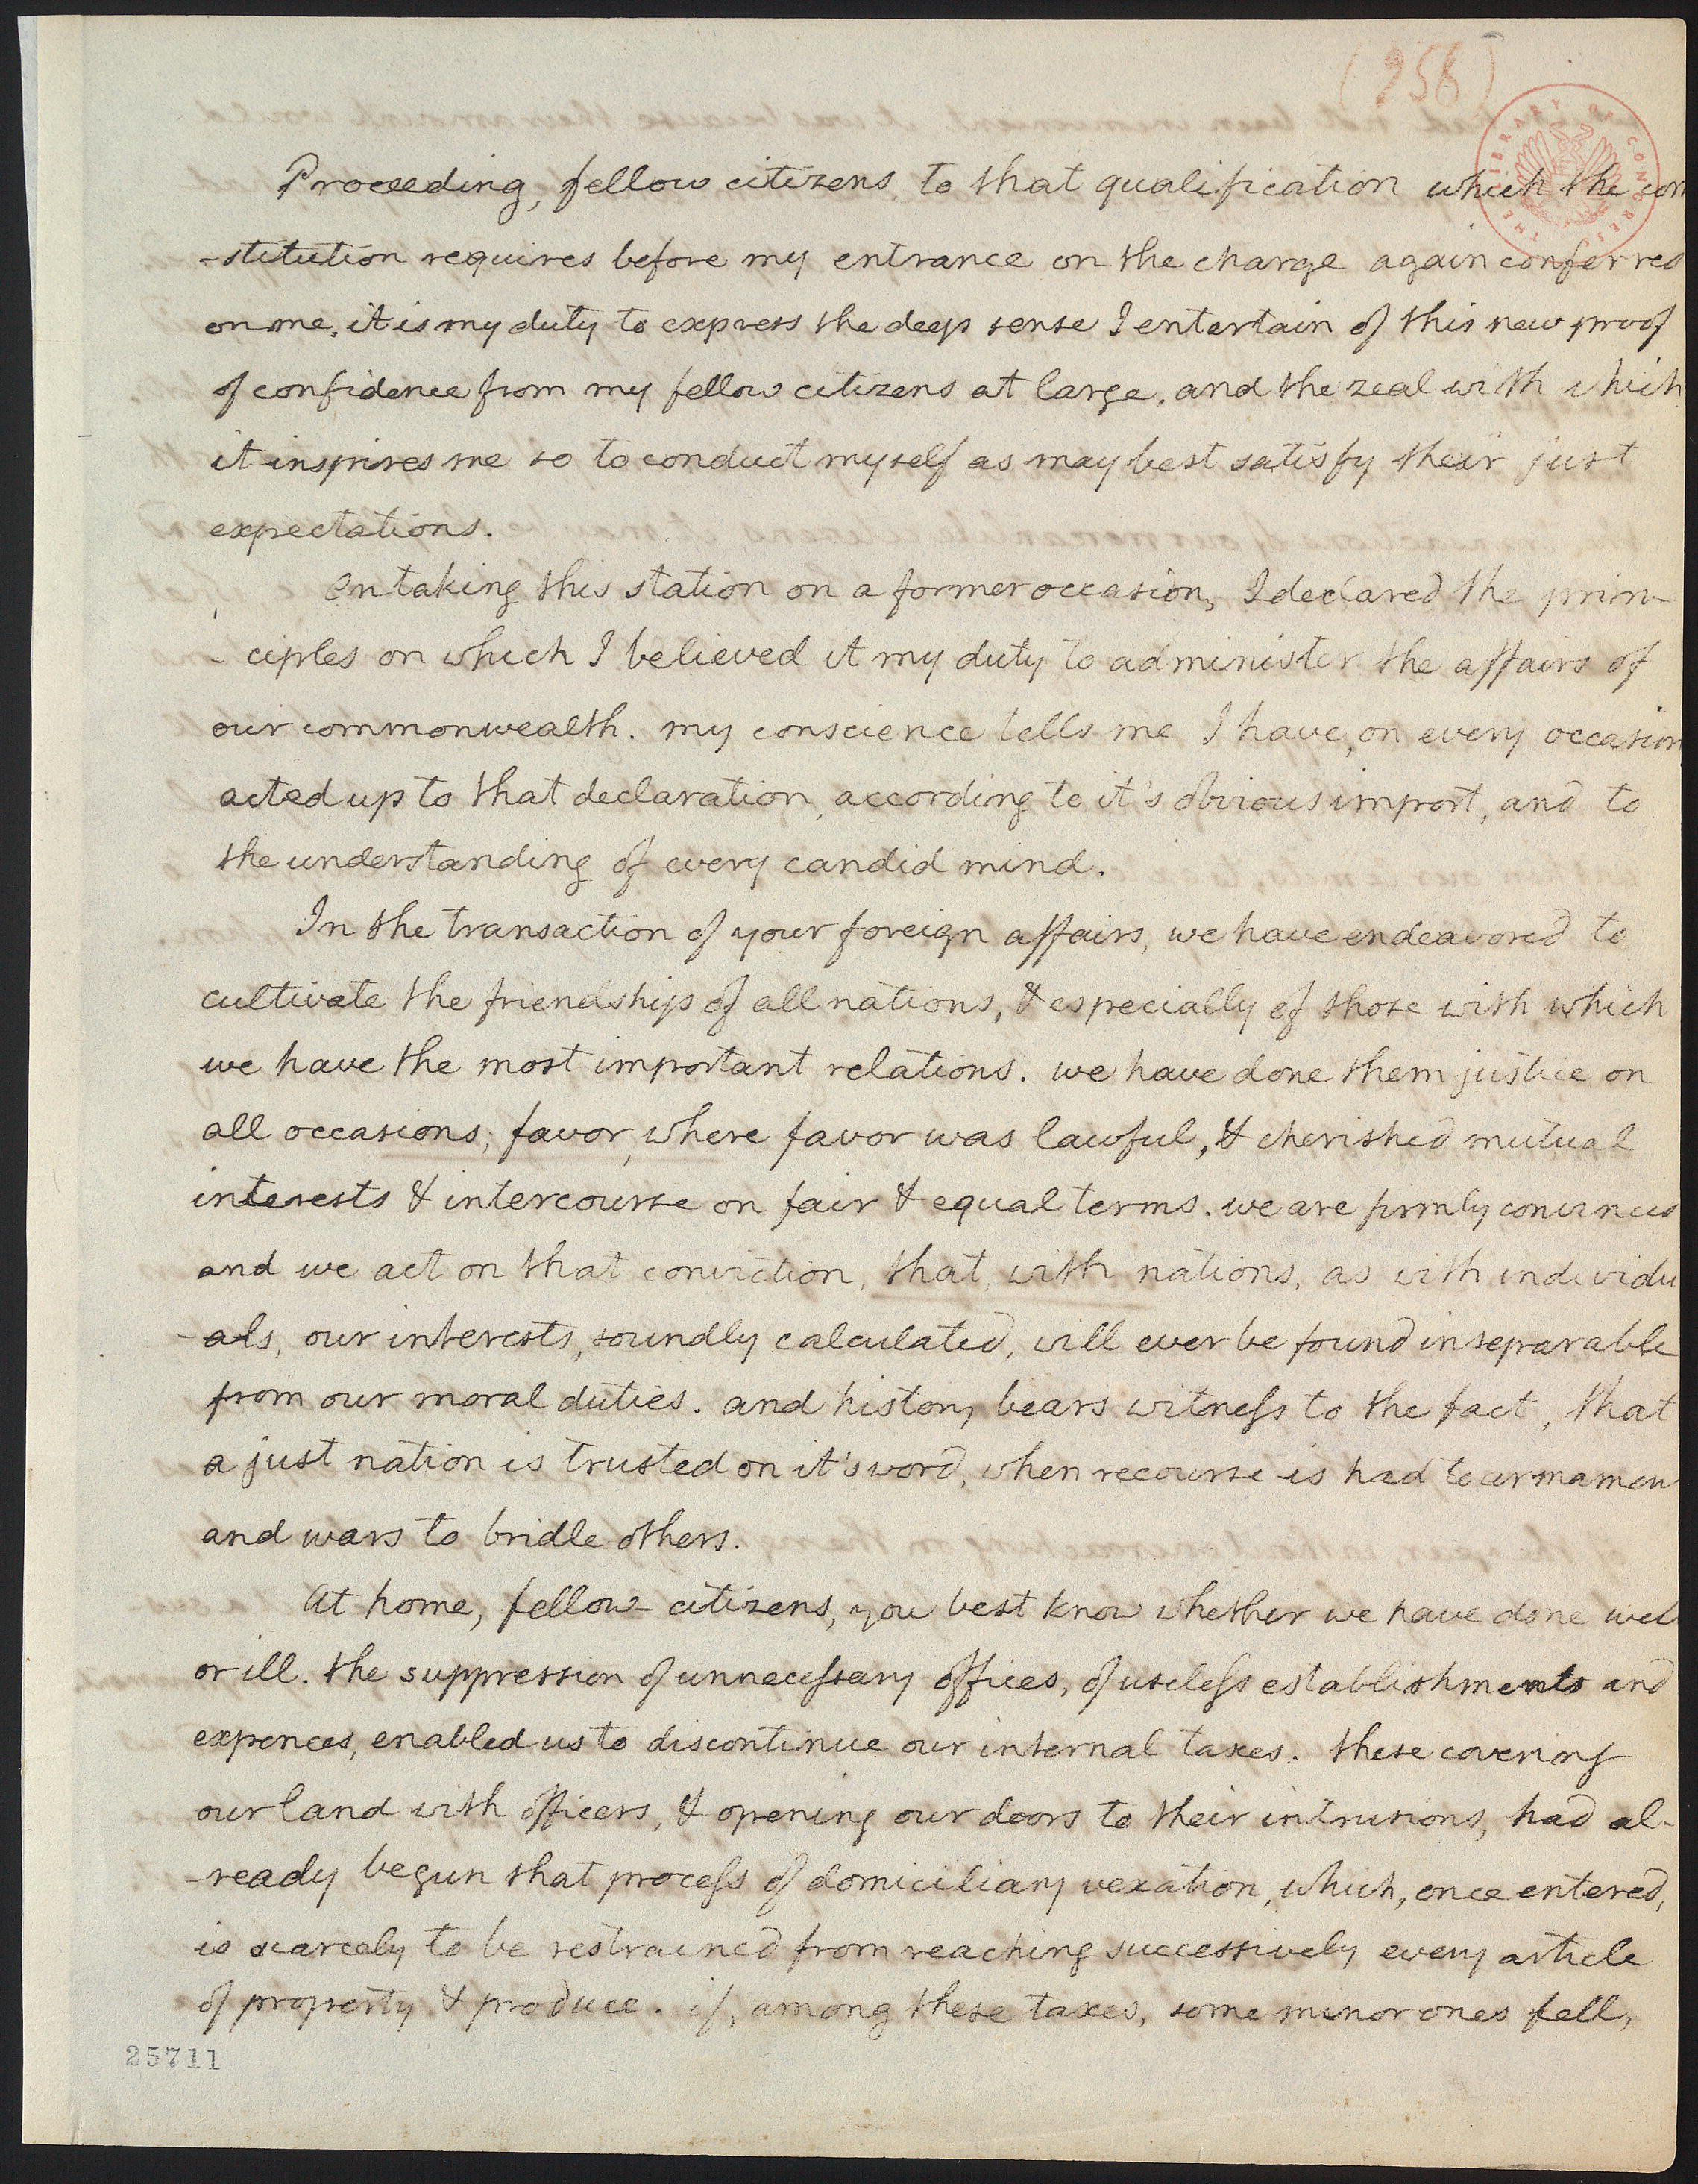 (256)
THE LIBRARY OF CONGRESS
Proceeding, fellow citizens, to that qualification which the con
-stitution requires before my entrance on the charge again conferred
on me, it is my duty to express the deep sense I entertain of this new proof
of confidence from my fellow citizens at large, and the zeal with which
it inspires me so to conduct myself as may best satisfy their just
expectations.
On taking this station on a former occasion, I declared the prin-
-ciples on which I believed it my duty to administer the affairs of
our commonwealth. my conscience tells me I have, on every occasion
acted up to that declaration, according to it's obvious import, and to
the understanding of every candid mind.
In the transaction of your foreign affairs, we have endeavored to
cultivate the friendship of all nations, & especially of those with which
we have the most important relations. we have done them justice on
all occasions, favor, where favor was lawful, & cherished mutual
interests & intercourse on fair & equal terms. we are firmly convinced
and we act on that conviction, that, with nations, as with individu
-als, our interests, soundly calculated, will ever be found inseparable
from our moral duties. and history bears witness to the fact, that
a just nation is trusted on it's word, when recourse is had to armamen
and wars to bridle others.
At home, fellow-citizens, you best know whether we have done well
or ill. the suppression of unnecessary offices, of useless establishments and
expences, enabled us to discontinue our internal taxes. these covering
our land with officers, & opening our doors to their intrusions, had al-
-ready begun that process of domiciliary vexation, which, once entered,
is scarcely to be restrained from reaching successively every article
of property & produce. if, among these taxes, some minor ones fell,
25711